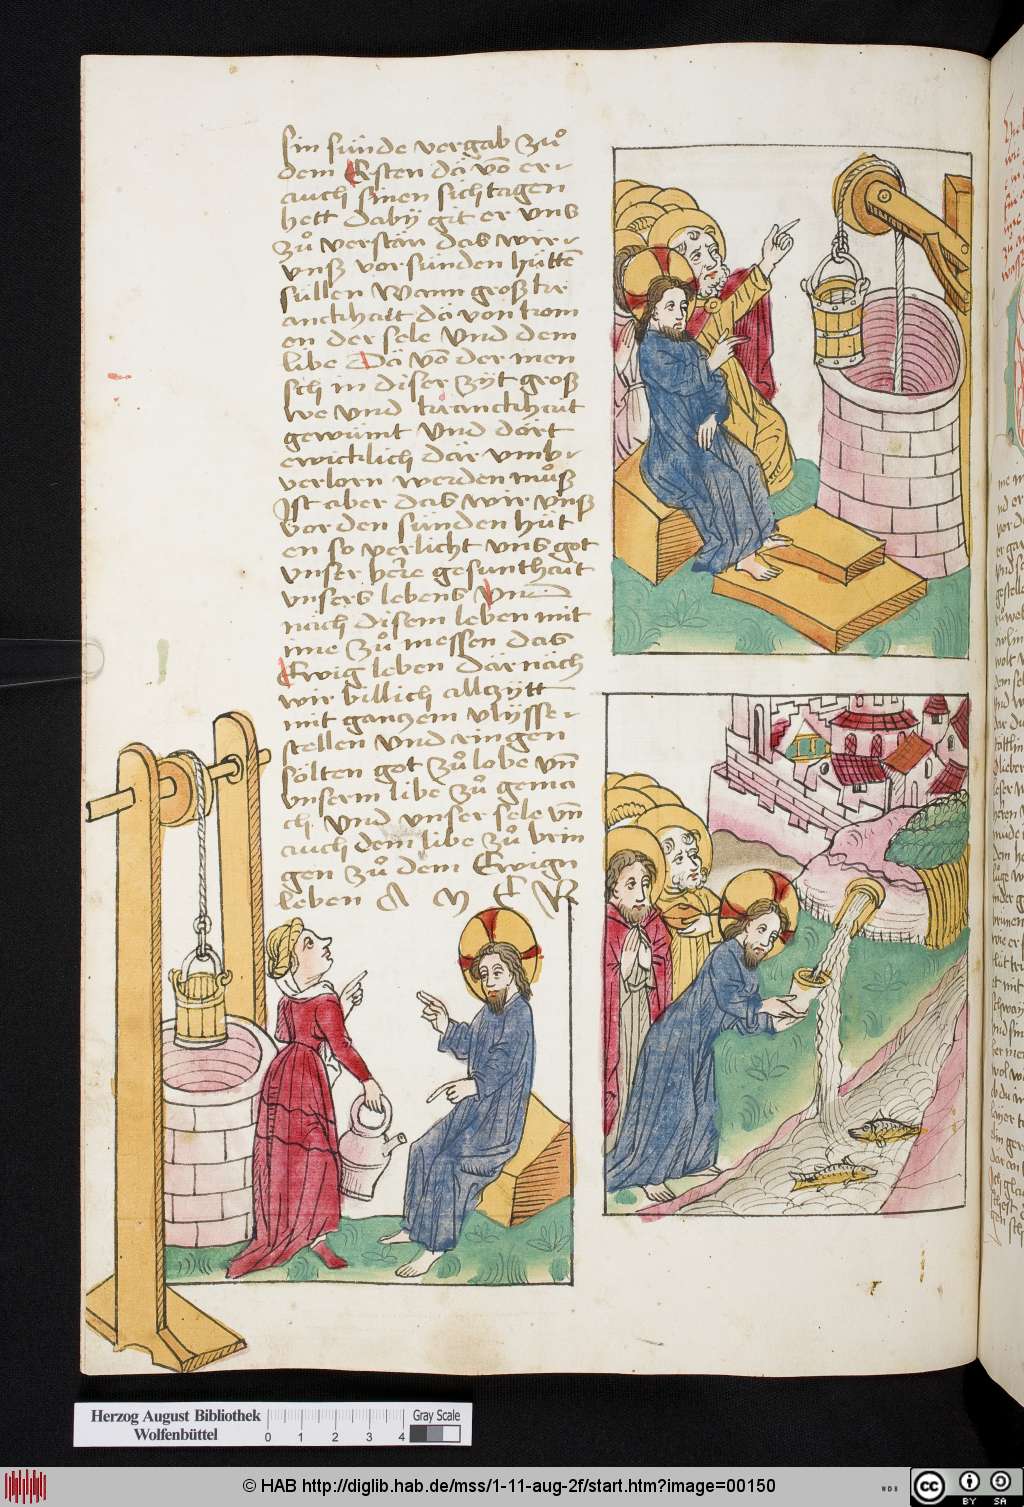 sin sünde vergab zuͦ
dem Ersten dä võ er
auch sinen sichtagen
hett dabÿ git er vns
zuͦ verstän das wir
vnß vor sünden hüttẽ
süllen Wann groß kra
anckhait dä von kom
en der sele Vnd dem
libe Dä võ der men
sch in diser zÿt groß
we vnd kranckhait
gewünt Vnd dört
ewicklich dar vmb
verlorn werden muͦß
Ist aber das wir vnß
vor den sünden hüt
en so verlicht vns got
vnser here gesunthait
vnsers lebens Vnd
näch disem leben mit
ime zuͦ messen das
Ewig leben där näch
wir billich allzÿtt
mit ganczem vlÿsse
stellen vnd ringen
sölten got zuͦ lobe vñ
vnserm libe zuͦ gema
ch Vnd vnser sele vñ
auch dem libe zuͦ brin
gen zuͦ dem Ewign
leben A M E N
Herzog August Bibliothek
Wolfenbüttel
0 1 2 3 4
Gray Scale
© HAB http://diglib.hab.de/mss/1-11-aug-2f/start.htm?image=00150
WDB
cc BY SA